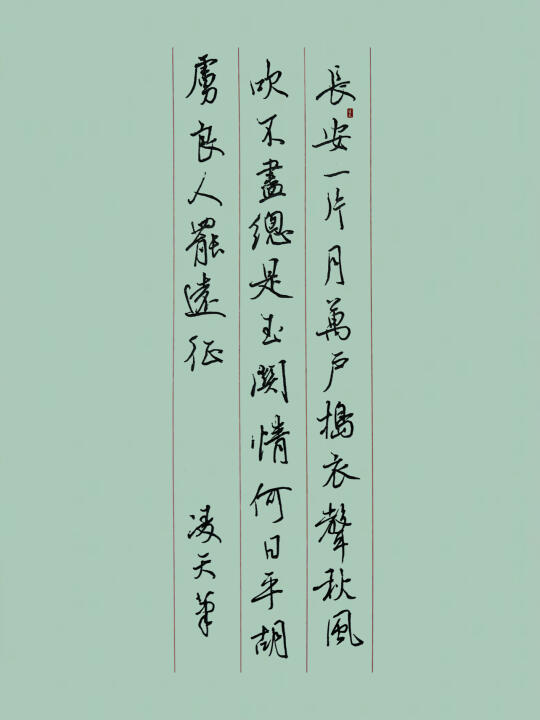 長安一片月萬戶搗衣聲秋風
吹不盡總是玉関情何日平胡
虜良人罷遠征
凌天筆